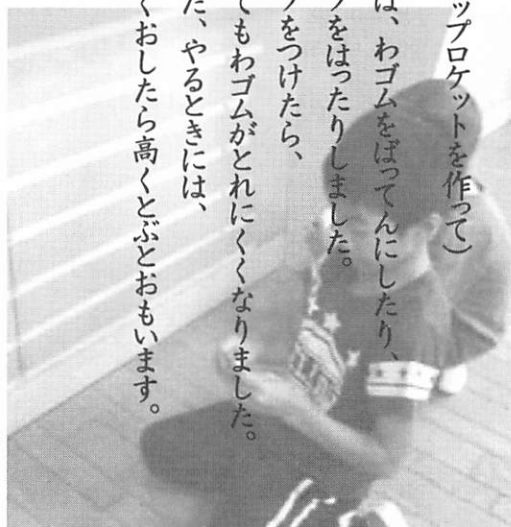 ップロケットを作って）
は、わゴムをばってんにしたり、
プをはったりしました。
プをつけたら、
てもわゴムがとれにくくなりました。
た、やるときには、
くおしたら高くとぶとおもいます。